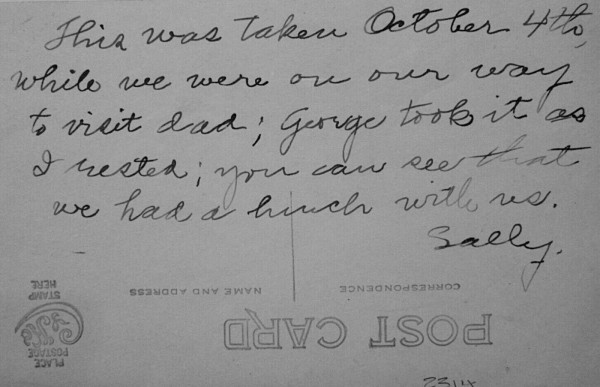 This was taken October 4th,
while we were on our way
to visit dad; George took it as
I rested; you can see that
we had a lunch with us.
Sally.
POST CARD
CORRESPONDENCE
NAME AND ADDRESS
PLACE
POSTAGE
STAMP
HERE